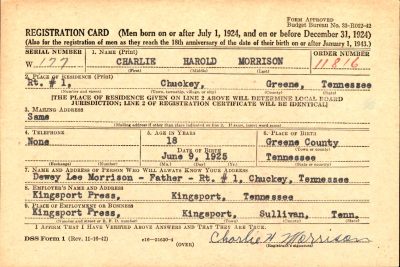 Form Approved
Budget Bureau No. 33-R012-42
REGISTRATION CARD—(Men born on or after July 1, 1924, and on or before December 31, 1924)
(Also for the registration of men as they reach the 18th anniversary of the date of their birth on or after January 1, 1943.)
SERIAL NUMBER
1. Name (Print)
ORDER NUMBER
W 177
CHARLIE HAROLD MORRISON
11816
(First) (Middle) (Last)
2. Place of Residence (Print)
Rt. # 1, Chuckey, Greene, Tennessee
(Number and street) (Town, township, village, or city) (County) (State)
[THE PLACE OF RESIDENCE GIVEN ON LINE 2 ABOVE WILL DETERMINE LOCAL BOARD
JURISDICTION; LINE 2 OF REGISTRATION CERTIFICATE WILL BE IDENTICAL]
3. Mailing Address
Same
[Mailing address if other than place indicated on line 2. If same, insert word same]
4. Telephone
5. Age in Years
6. Place of Birth
None
18
Greene County
Date of Birth
(Town or county)
June 9, 1925
Tennessee
(Exchange) (Number) (Mo.) (Day) (Yr.) (State or country)
7. Name and Address of Person Who Will Always Know Your Address
Dewey Lee Morrison - Father - Rt. # 1, Chuckey, Tennessee
8. Employer's Name and Address
Kingsport Press, Kingsport, Tennessee
9. Place of Employment or Business
Kingsport Press, Kingsport, Sullivan, Tenn.
(Number and street or R. F. D. number) (Town) (County) (State)
I Affirm That I Have Verified Above Answers and That They Are True.
DSS Form 1 (Rev. 11-16-42)
(OVER)
Charlie H Morrison
(Registrant's signature)